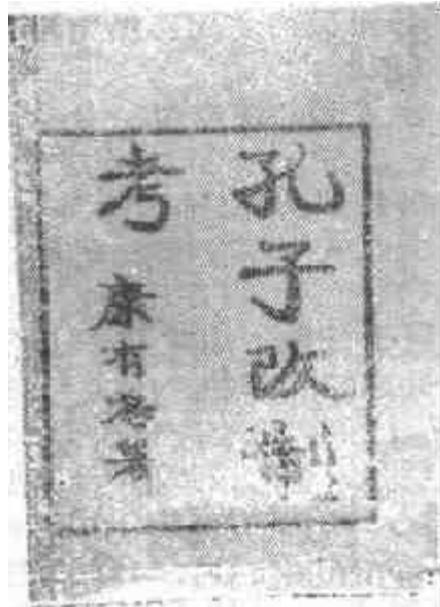 孔子改
考 康有為著